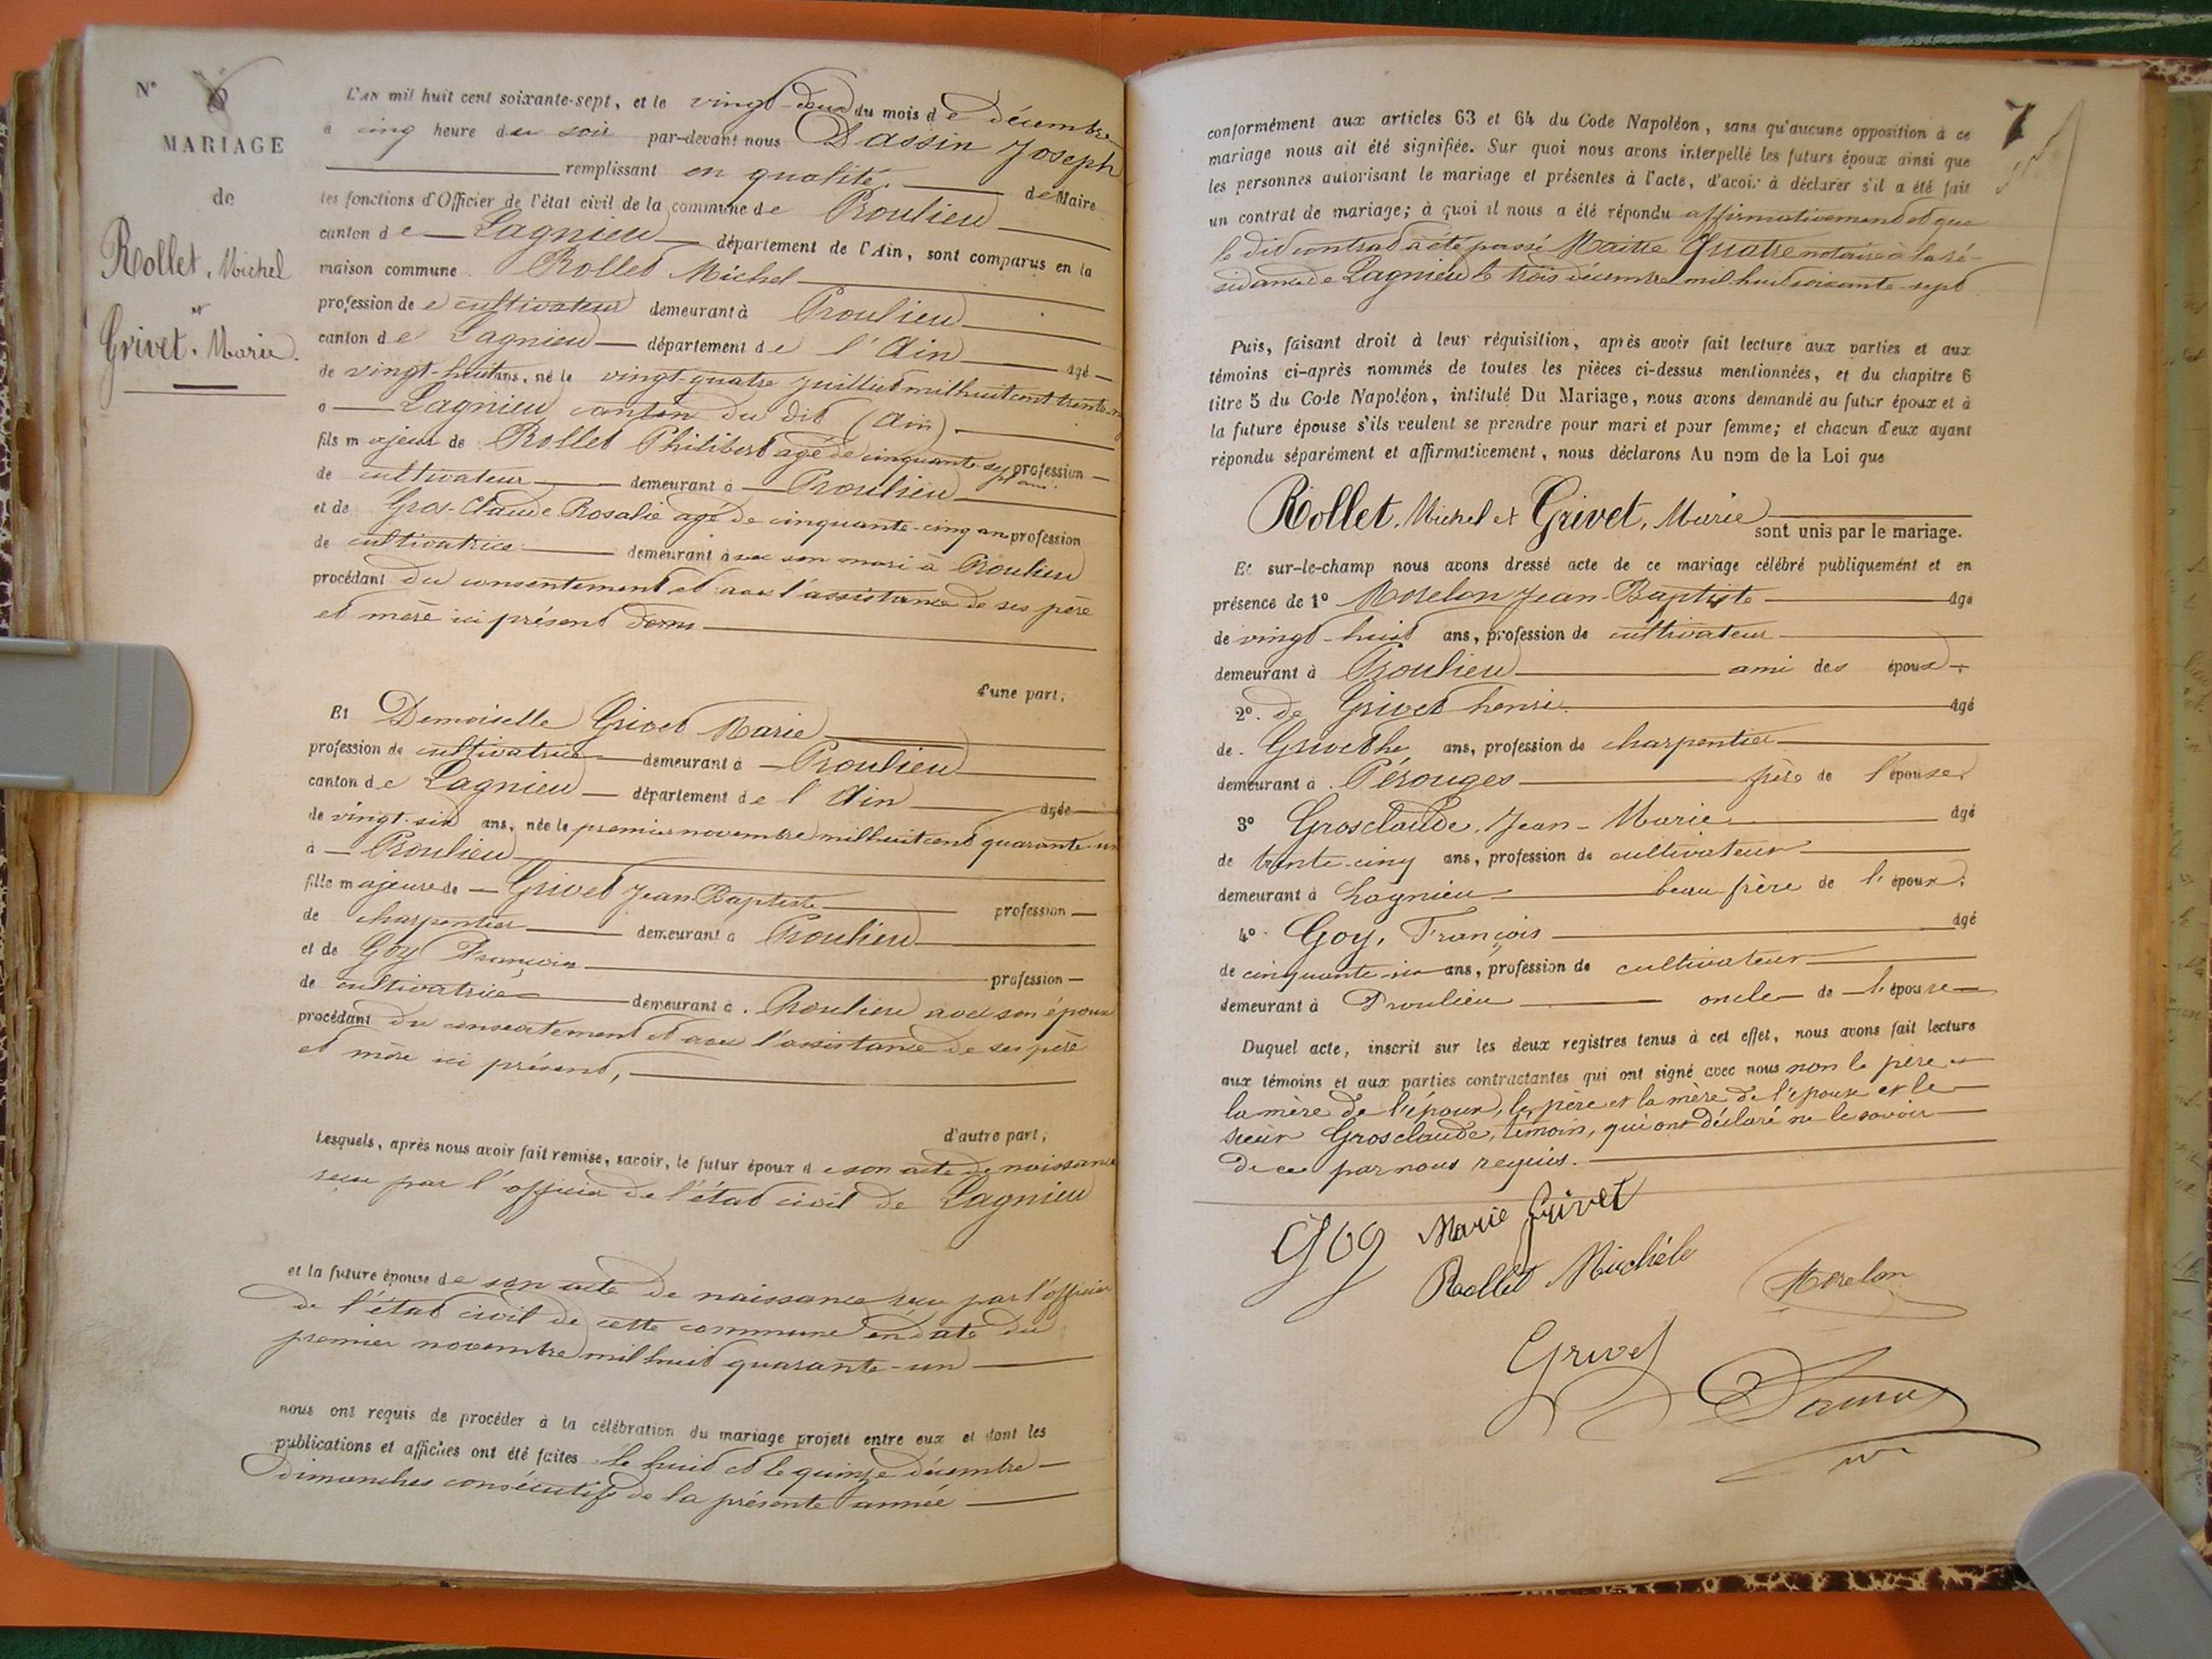 N° 6
MARIAGE
de
Rollet, Michel
et
Grivet, Marie.
L'AN mil huit cent soixante-sept, et le vingt-deux du mois de décembre
a cinq heure du soir par-devant nous Dassin Joseph
remplissant en qualité de Maire
les fonctions d'Officier de l'état civil de la commune de Proulieu
canton de Lagnieu département de l'Ain, sont comparus en la
maison commune Rollet Michel
profession de cultivateur demeurant à Proulieu
canton de Lagnieu département de l'Ain âgé
de vingt-huit ans, né le vingt-quatre juilliet mil huit cent trente
a Lagnieu canton du dit (Ain).
fils majeur de Rollet Philibert agé de cinquante sept ans profession
de cultivateur demeurant à Proulieu
et de Gros-Claude Rosalie agé de cinquante-cinq an profession
de cultivatrice demeurant avec son mari à Proulieu
procédant du consentement et avec l'assistance de ses père
et mère ici présent
d'une part;
Et Demoiselle Grivet Marie
profession de cultivatrice demeurant à Proulieu
canton de Lagnieu département de l'Ain âgée
de vingt-six ans, née le premier novembre mil huit cent quarante-un
à Proulieu
fille majeure de Grivet Jean Baptiste profession
de charpentier demeurant à Proulieu
et de Goy Françoise profession
de cultivatrice demeurant à Proulieu avec son époux
procédant du consentement et avec l'assistance de ses père
et mère ici présent,
d'autre part;
Lesquels, après nous avoir fait remise, savoir, le futur époux de son acte de naissance
reçu par l'officier de l'état civil de Lagnieu
et la future épouse de son acte de naissance reçu par l'officier
de l'état civil de cette commune en date du
premier novembre mil huit quarante-un
nous ont requis de procéder à la célébration du mariage projeté entre eux et dont les
publications et affiches ont été faites le huit et le quinze décembre
dimanches consécutifs de la présente année
7
conformément aux articles 63 et 64 du Code Napoléon, sans qu'aucune opposition à ce
mariage nous ait été signifiée. Sur quoi nous avons interpellé les futurs époux ainsi que
les personnes autorisant le mariage et présentes à l'acte, d'avoir à déclarer s'il a été fait
un contrat de mariage; à quoi il nous a été répondu affirmativement et que
le dit contrat a été passé Maitre Quatre notaire à la ré-
sidance de Lagnieu le trois décembre mil huit soixante-sept
Puis, faisant droit à leur réquisition, après avoir fait lecture aux parties et aux
témoins ci-après nommés de toutes les pièces ci-dessus mentionnées, et du chapitre 6
titre 5 du Code Napoléon, intitulé Du Mariage, nous avons demandé au futur époux et à
la future épouse s'ils veulent se prendre pour mari et pour femme; et chacun d'eux ayant
répondu séparément et affirmativement, nous déclarons Au nom de la Loi que
Rollet, Michel et Grivet, Marie
sont unis par le mariage.
Et sur-le-champ nous avons dressé acte de ce mariage célébré publiquement et en
présence de 1° Morelon Jean-Baptiste âgé
de vingt-huit ans, profession de cultivateur
demeurant à Proulieu ami des époux
2° de Grivet henri âgé
de ans, profession de charpentier
demeurant à Pérouges frère de l'épouse,
3° Grosclaude, Jean-Marie âgé
de trente-cinq ans, profession de cultivateur
demeurant à Lagnieu beau-frère de l'époux,
4° Goy, François âgé
de cinquante-six ans, profession de cultivateur
demeurant à Proulieu oncle de l'épouse
Duquel acte, inscrit sur les deux registres tenus à cet effet, nous avons fait lecture
aux témoins et aux parties contractantes qui ont signé avec nous non le père et
la mère de l'époux, le père et la mère de l'épouse et le
sieur Grosclaude, témoin, qui ont déclaré ne le savoir
de ce par nous requis.
goy Marie Grivet
Rollet Michéle Morelon
Grivet